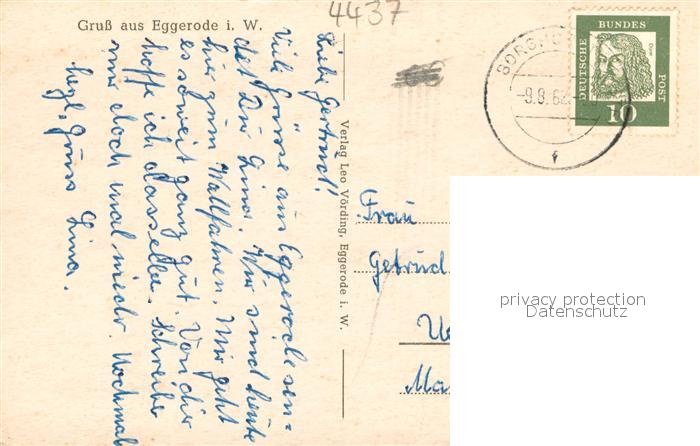 4437
Gruß aus Eggerode i. W.
Liebe Gertrud!
Viele Grüsse aus Eggerode sen=
det Dir Lina. Wir sind heute
hier zum Wallfahren. Mir geht
es soweit ganz gut. Von dir
hoffe ich dasselbe. Schreibe
mir doch mal wieder. Nochmal
herzl. Grüss Lina.
Verlag Leo Vörding, Eggerode i. W.
BORGHO
-9.8.62
f
DEUTSCHE BUNDES POST
Dürer
10
Frau
Getrud
Ma
privacy protection
Datenschutz